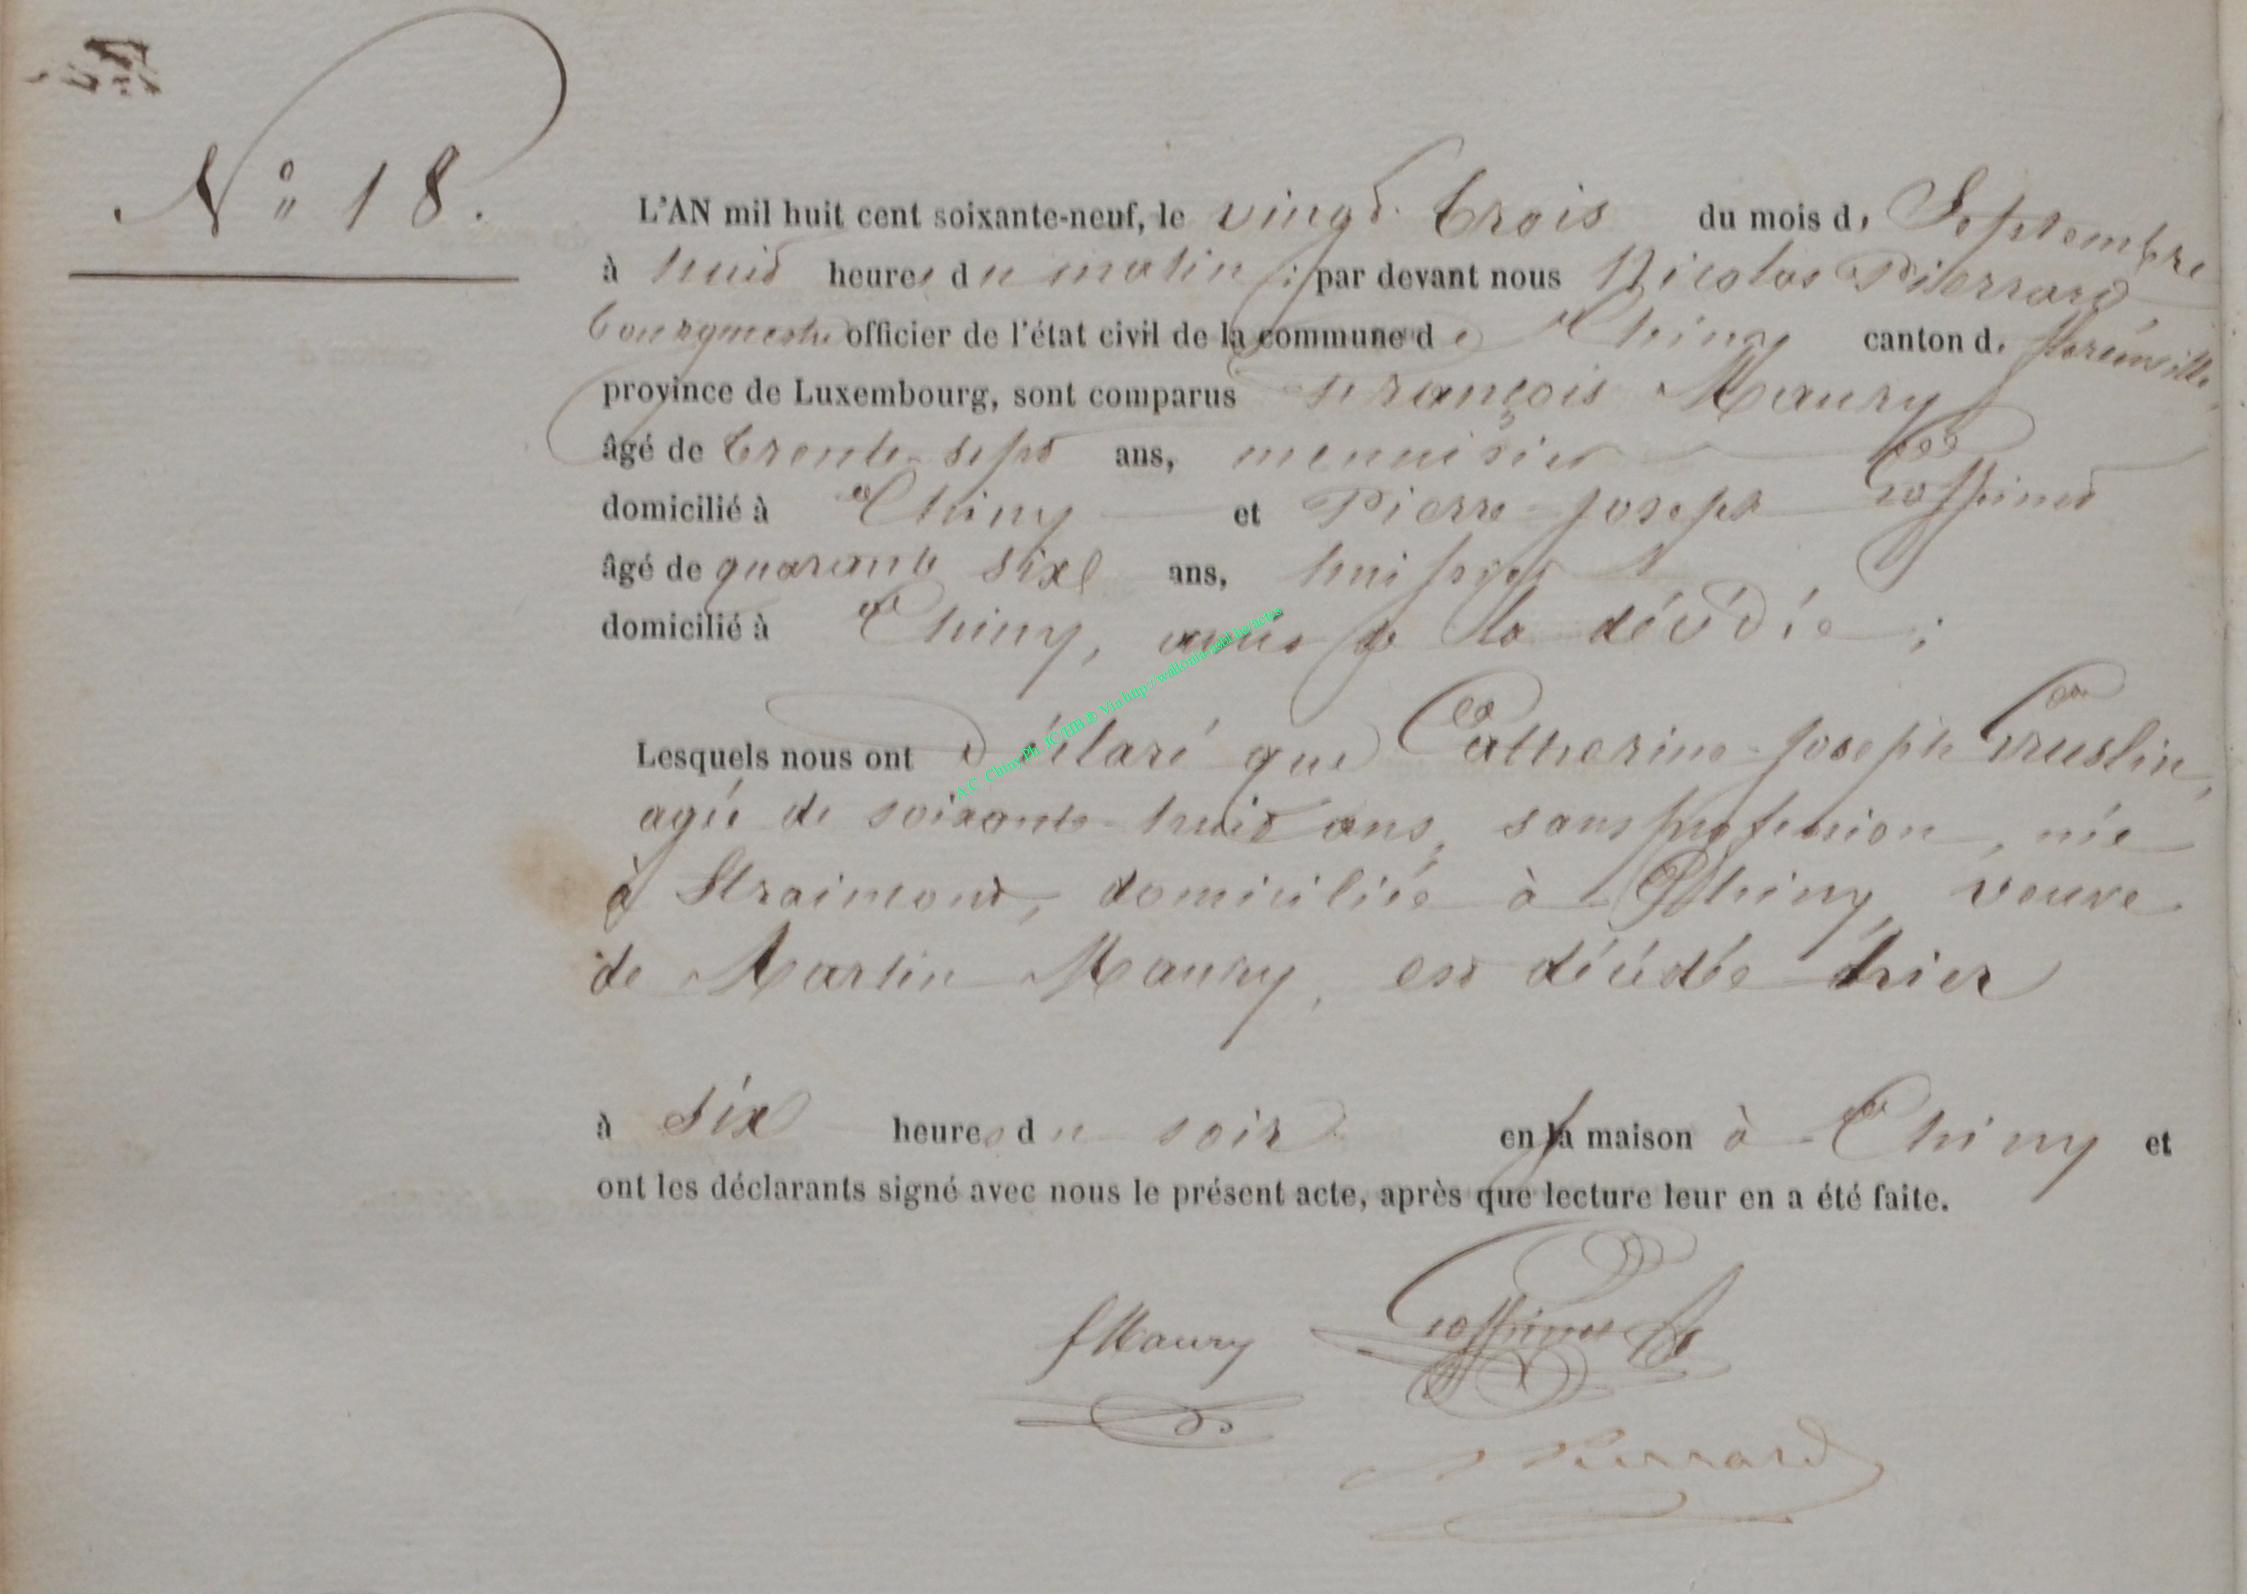 N° 18.
L'AN mil huit cent soixante-neuf, le vingt trois du mois de Septembre
à huit heures du matin ; par devant nous Nicolas Pierrard
bourgmestre officier de l'état civil de la commune de Chiny canton de florenville,
province de Luxembourg, sont comparus François Maury
âgé de trente-sept ans, menuisier
domicilié à Chiny et Pierre-Joseph Goffinet
âgé de quarante six ans, huissier
domicilié à Chiny, amis de la décédée ;
Lesquels nous ont déclaré que Catherine-Joseph
agée de soixante-huit ans, sans profession, née
à Straimont, domiciliée à Chiny, veuve
de Martin Maury, est décédée hier
à six heures du soir en sa maison à Chiny et
ont les déclarants signé avec nous le présent acte, après que lecture leur en a été faite.
fMaury Goffinet
N Pierrard
A.C. Chiny Ph. JC/HB ® Via http://wallonia-asbl.be/actes